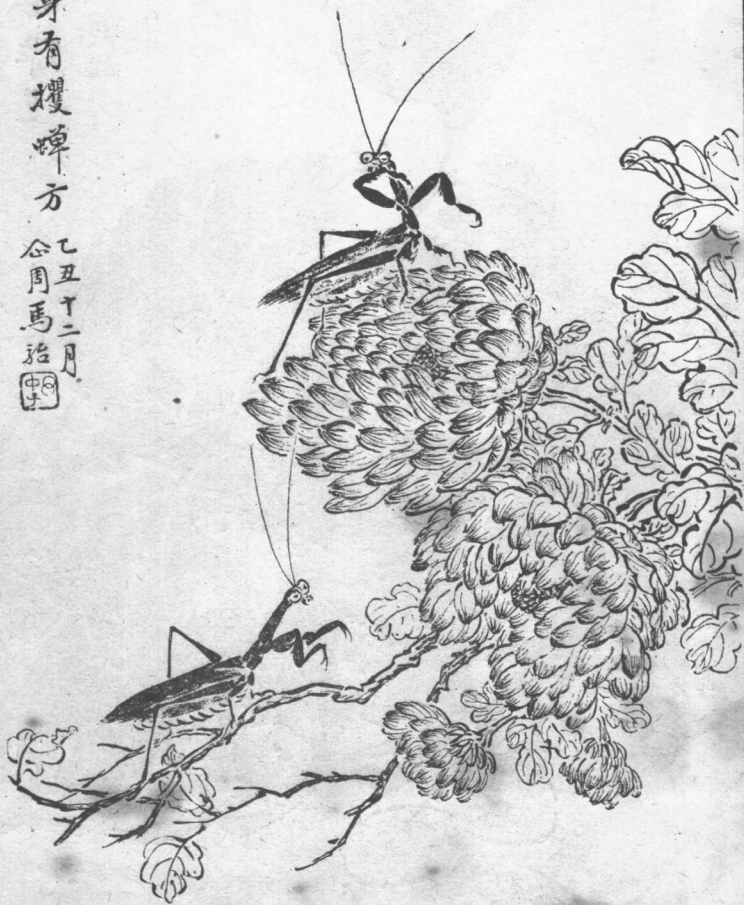 身有攫蟬方
乙丑十二月
企周馬駘